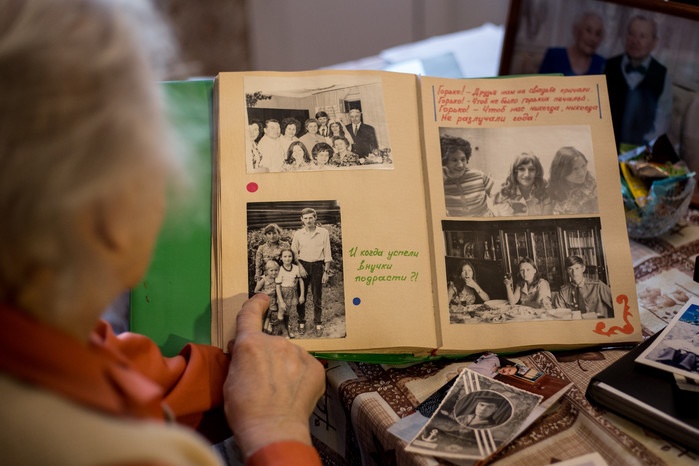 Горько! - Друзья нам на свадьбе кричали
Горько! - Чтоб не было горьких печалей,
Горько! - Чтоб нас никогда, никогда
Не разлучали года!
И когда успели
внучки
подрасти?!